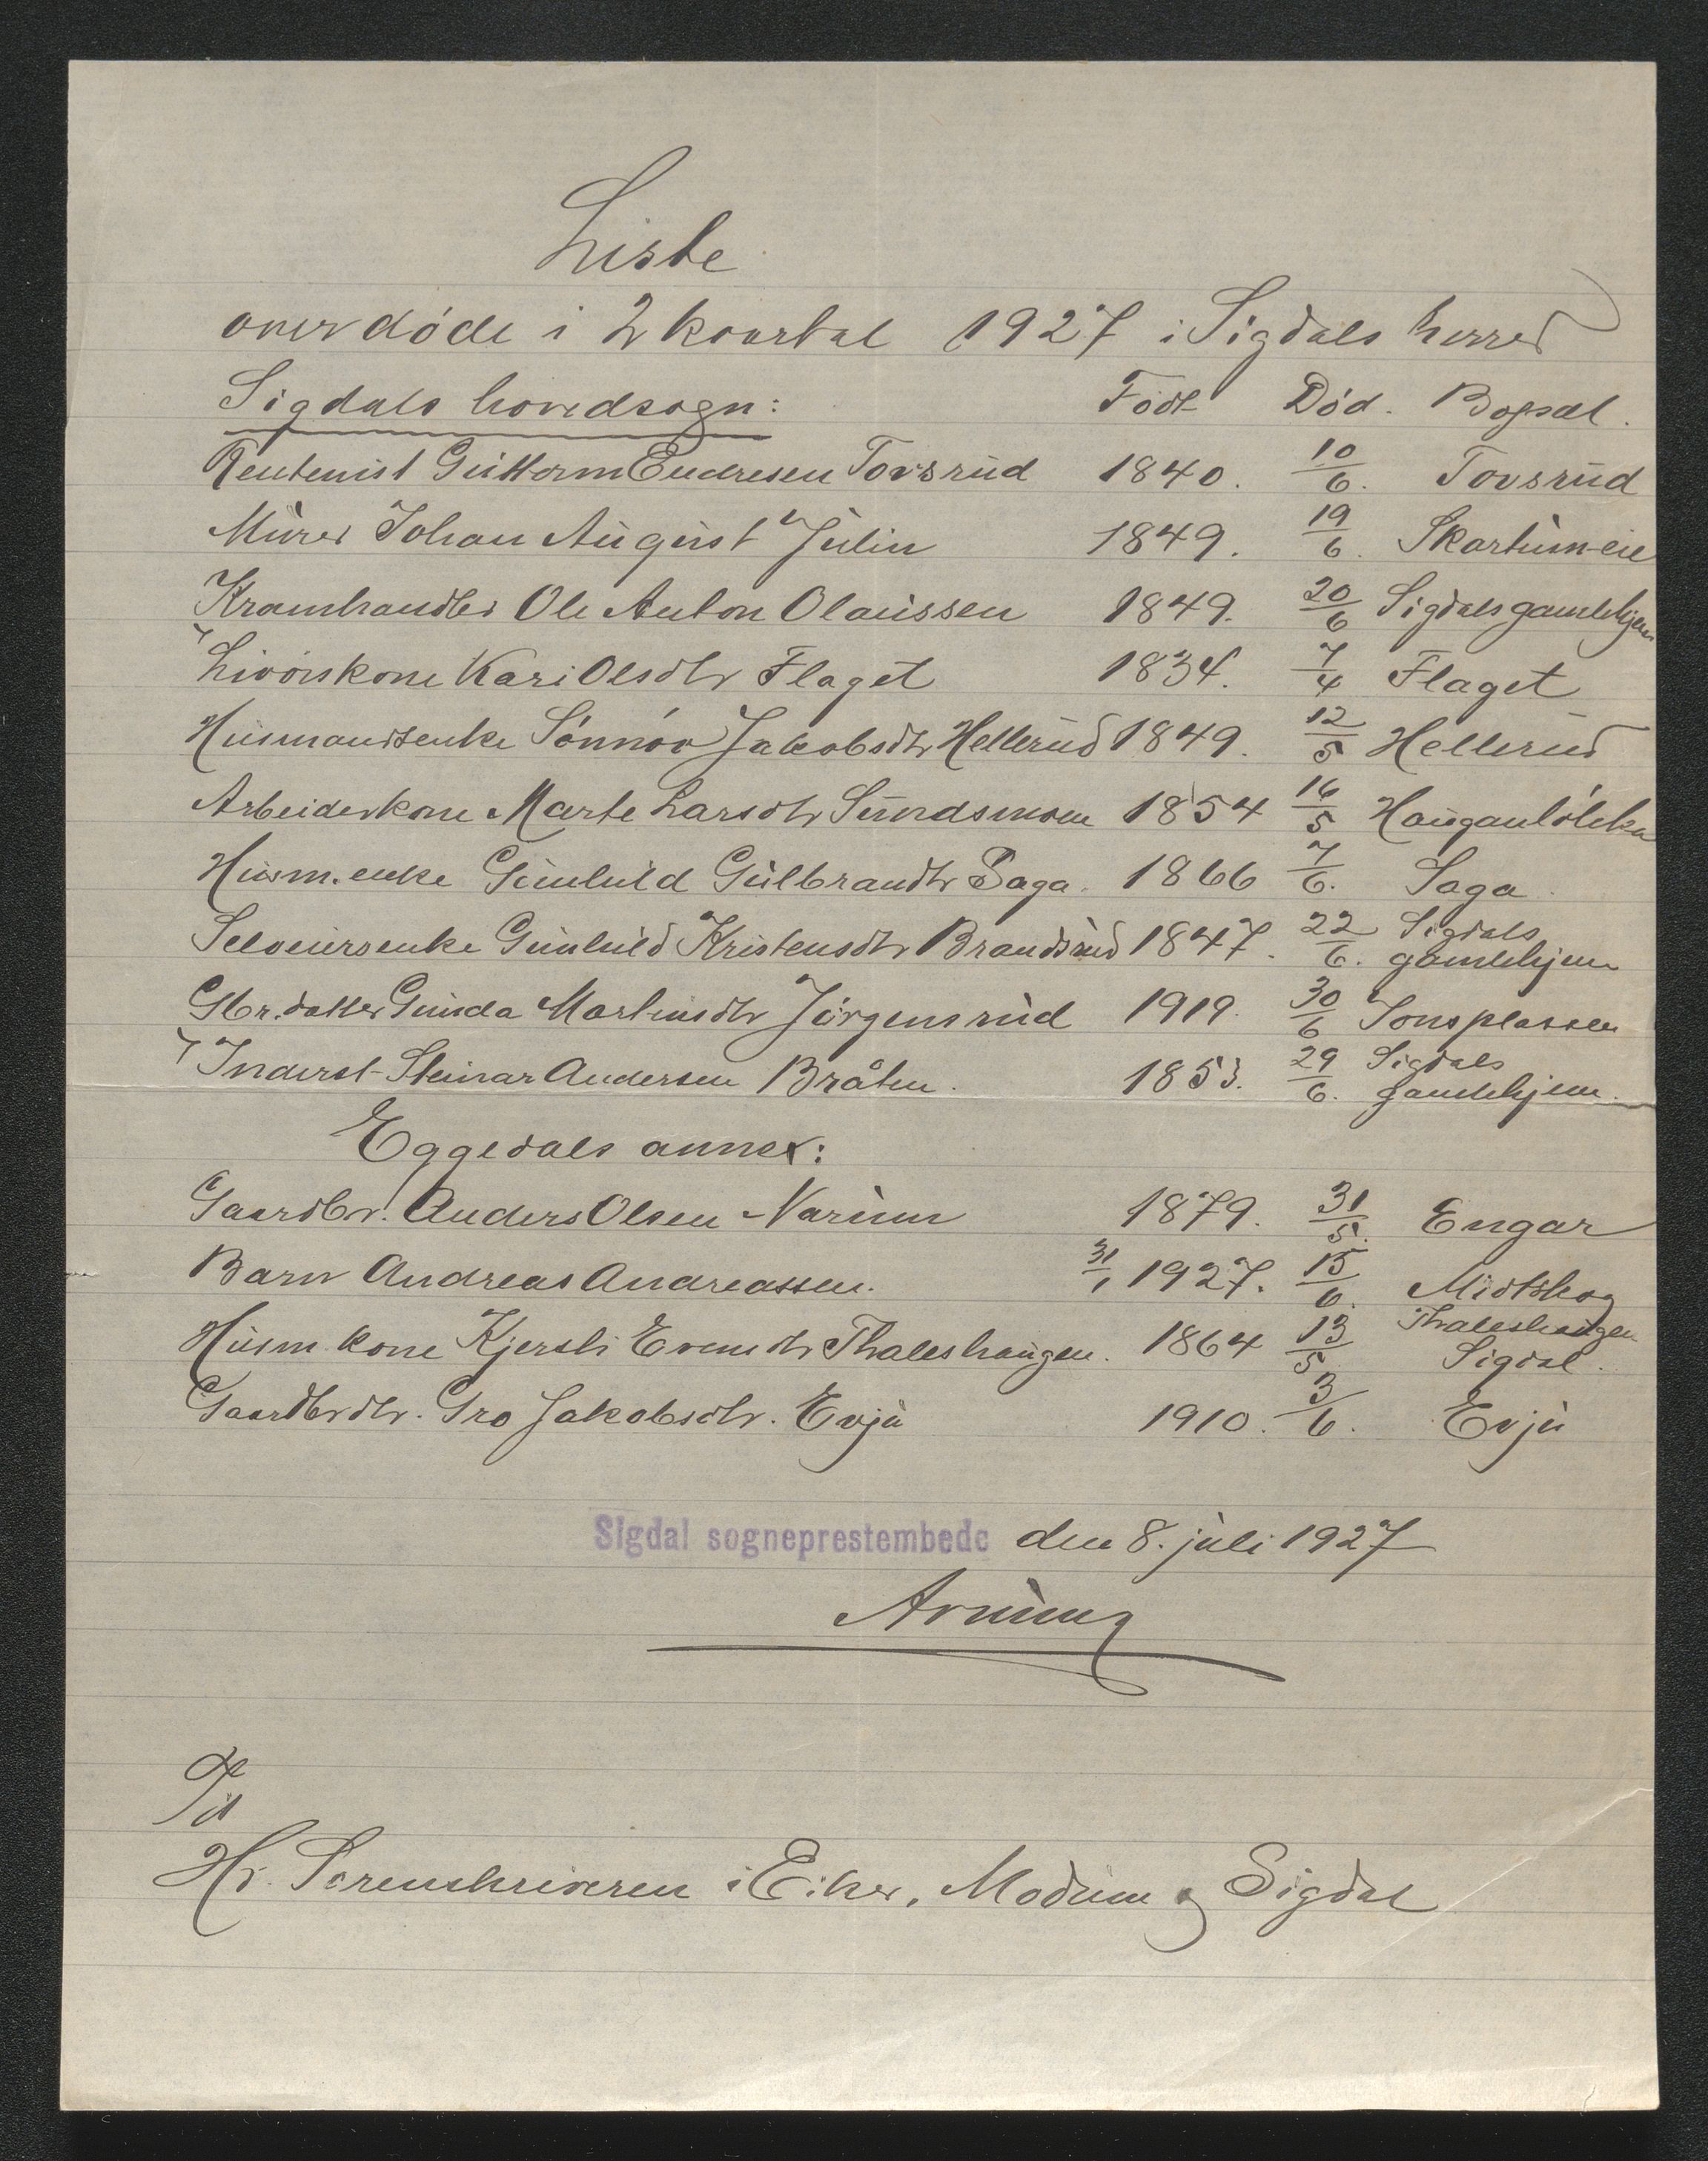 Liste
over døde i 2 kvartal 1927 i Sigdals herred
Sigdals hovedsogn: Født Død. Bopæl.
Rentenist Guttorm Endresen Tovsrud 1840. 10/6. Tovsrud
Murer Johan August Julin 1849. 19/6. Skartum-eie
Kramhandler Ole Anton Olaussen 1849. 20/6 Sigdals gamlehjem
Livørskone Kari Olsdtr Flaget 1834. 7/4 Flaget
Husmandsenke Sønnøv Jakobsdtr Hellerud 1849. 12/5 Hellerud
Arbeiderkone Marte Larsdtr Sundsmoen 1854 16/5 Hauganløkka
Husm.enke Gunhild Gulbrandtr Saga. 1866 7/6. Saga.
Selveiersenke Gunhild Kristensdtr Brandsrud 1847. 22/6. Sigdals gamlehjem
Gbr.datter Gunda Martinsdtr Jørgensrud 1919. 30/6 Jonsplassen
Inderst Steinar Andersen Bråten. 1853. 29/6. Sigdals gamlehjem.
Eggedals annex:
Gaardbr. Anders Olsen Narum 1879. 31/5. Engar
Barn Andreas Andreassen. 31/1 1927. 15/6. Midtskog
Husm. kone Kjersti Evensdtr Thaleshaugen. 1864 13/5 Thaleshaugen Sigdal.
Gaardbrdtr. Gro Jakobsdtr. Evju 1910. 3/6. Evju
Sigdal sogneprestembede den 8. juli 1927
Arnung
Til
Hr. Sorenskriveren i Eiker, Modum og Sigdal